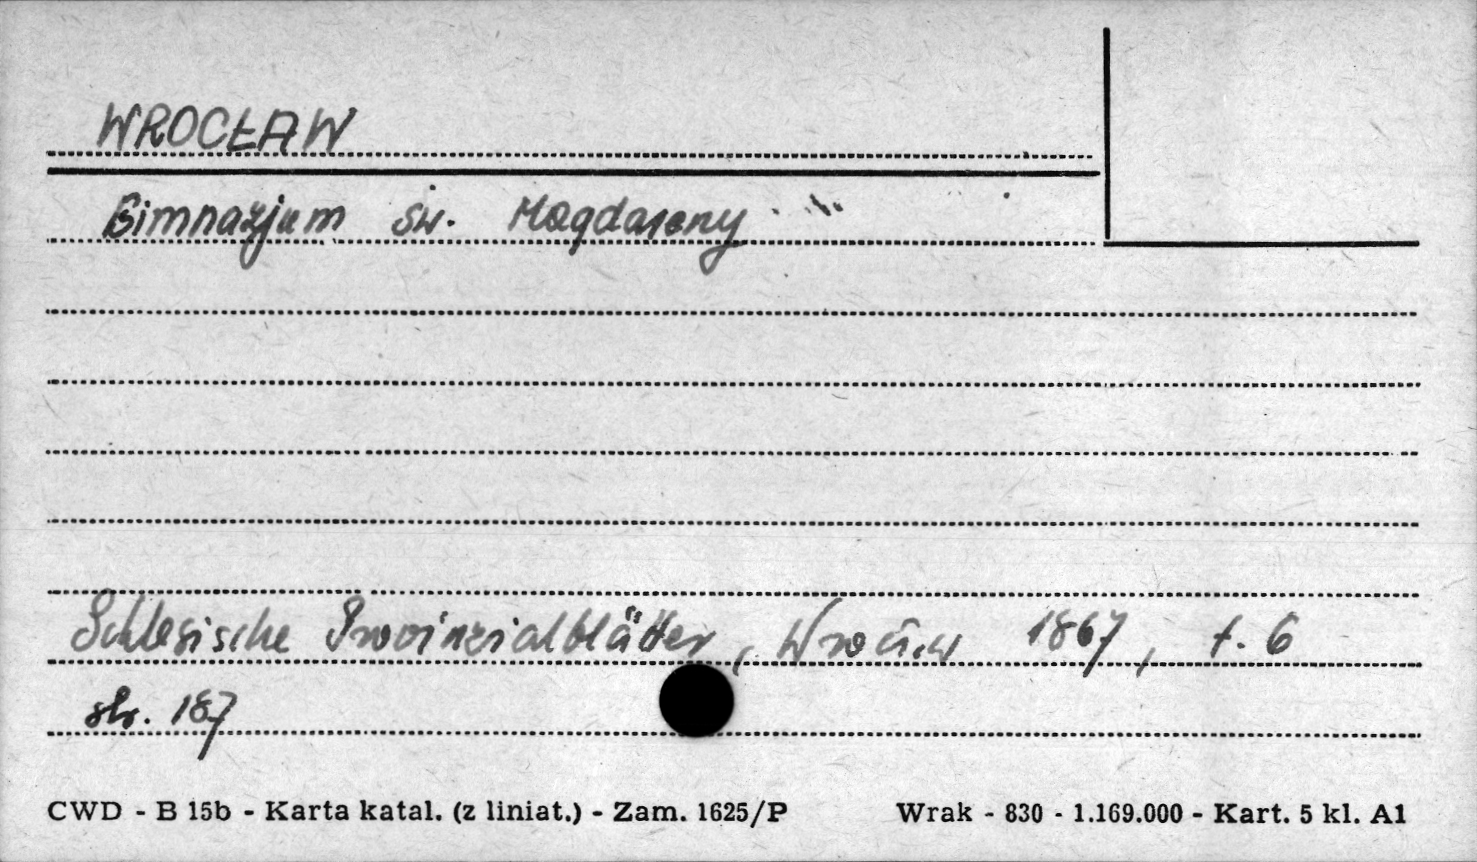 WROCŁAW
Gimnazjum św. Magdaleny
Schlesische Provinzialblätter, Wrocław 1867, t. 6
str. 187
CWD - B 15b - Karta katal. (z liniat.) - Zam. 1625/P Wrak - 830 - 1.169.000 - Kart. 5 kl. A1